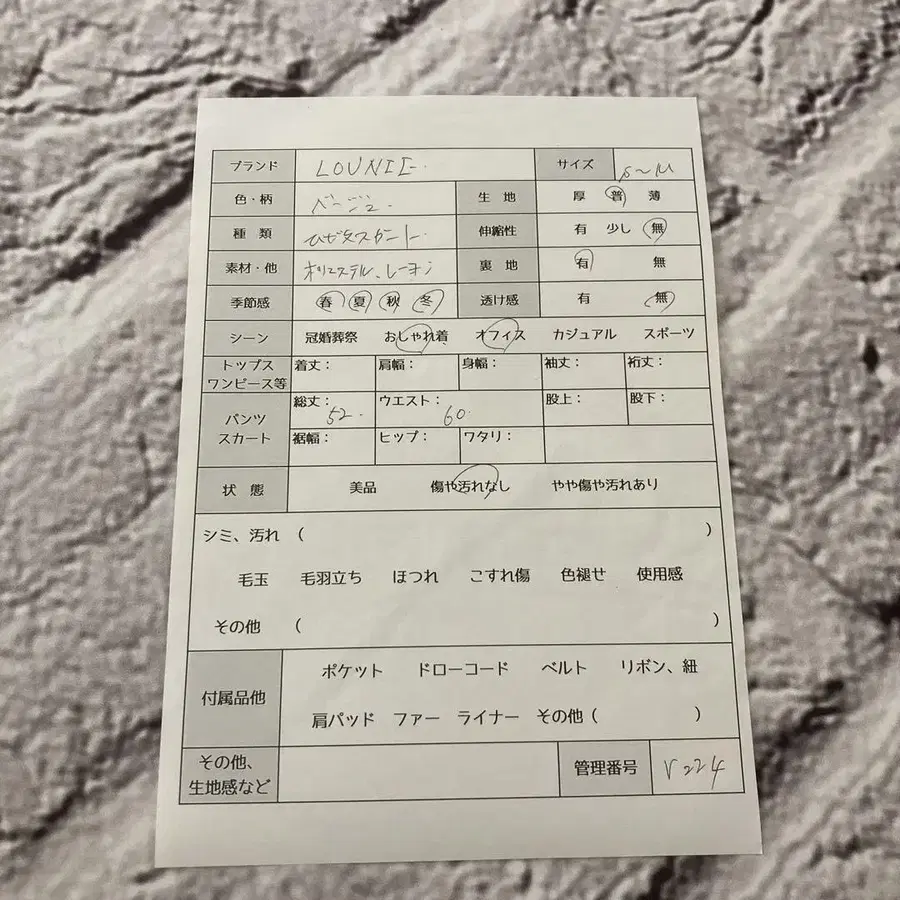 ブランド LOUNIE. サイズ S～M
色・柄 ベージュ. 生地 厚 普 薄
種類 ひざ丈スカート 伸縮性 有 少し 無
素材・他 ポリエステル、レーヨン 裏地 有 無
季節感 春 夏 秋 冬 透け感 有 無
シーン 冠婚葬祭 おしゃれ着 オフィス カジュアル スポーツ
トップス ワンピース等 着丈： 肩幅： 身幅： 袖丈： 裄丈：
パンツ スカート 総丈： 52. ウエスト： 60. 股上： 股下：
裾幅： ヒップ： ワタリ：
状態 美品 傷や汚れなし やや傷や汚れあり
シミ、汚れ （ ）
毛玉 毛羽立ち ほつれ こすれ傷 色褪せ 使用感
その他 （ ）
付属品他 ポケット ドローコード ベルト リボン、紐
肩パッド ファー ライナー その他（ ）
その他、 生地感など 管理番号 V224